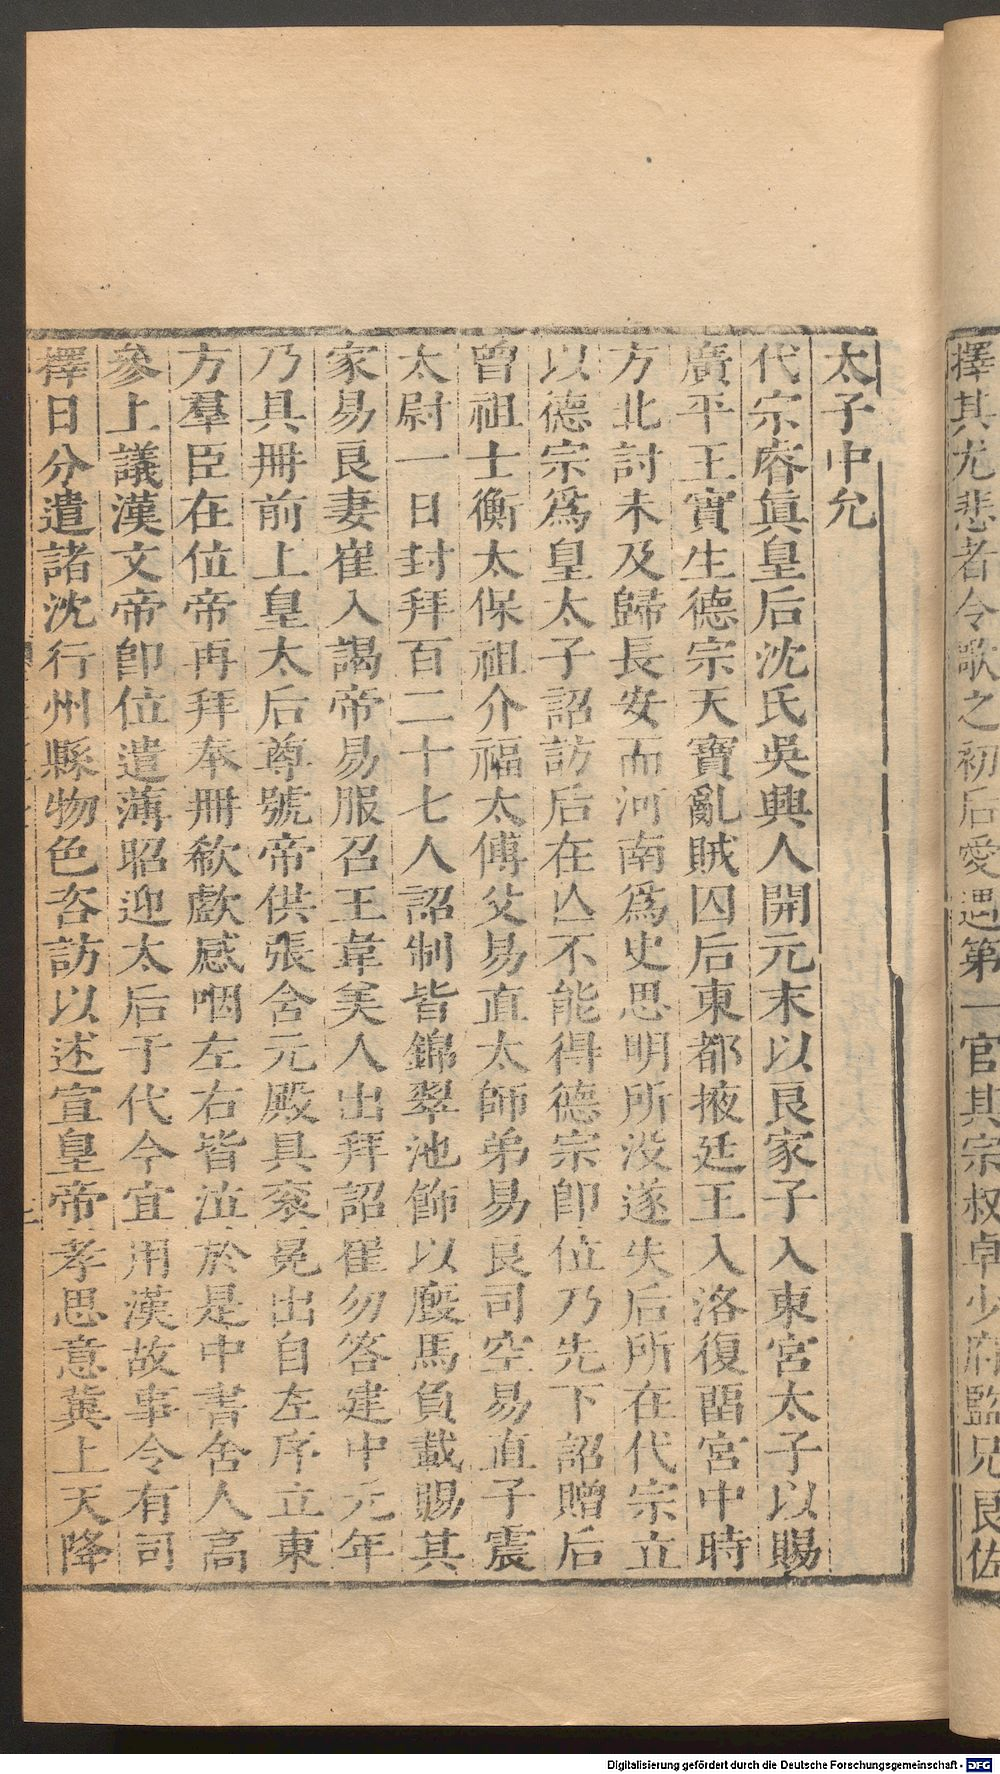 擇其尤悲者令歌之初后愛遇第一官其宗叔卓少府監兄良佐
太子中允
代宗睿眞皇后沈氏吳興人開元末以良家子入東宮太子以賜
廣平王實生德宗天寶亂賊囚后東都掖廷王入洛復留宮中時
方北討未及歸長安而河南爲史思明所没遂失后所在代宗立
以德宗爲皇太子詔訪后在亾不能得德宗卽位乃先下詔贈后
曾祖士衡太保祖介福太傅父易直太師弟易良司空易直子震
太尉一日封拜百二十七人詔制皆錦翠池飾以廏馬負載賜其
家易良妻崔入謁帝易服召王韋美人出拜詔崔勿答建中元年
乃具冊前上皇太后尊號帝供張含元殿具袞冕出自左序立東
方羣臣在位帝再拜奉冊欷歔感咽左右皆泣於是中書舍人高
參上議漢文帝卽位遣薄昭迎太后于代今宜用漢故事令有司
擇日分遣諸沈行州縣物色咨訪以述宣皇帝孝思意冀上天降
Digitalisierung gefördert durch die Deutsche Forschungsgemeinschaft - DFG